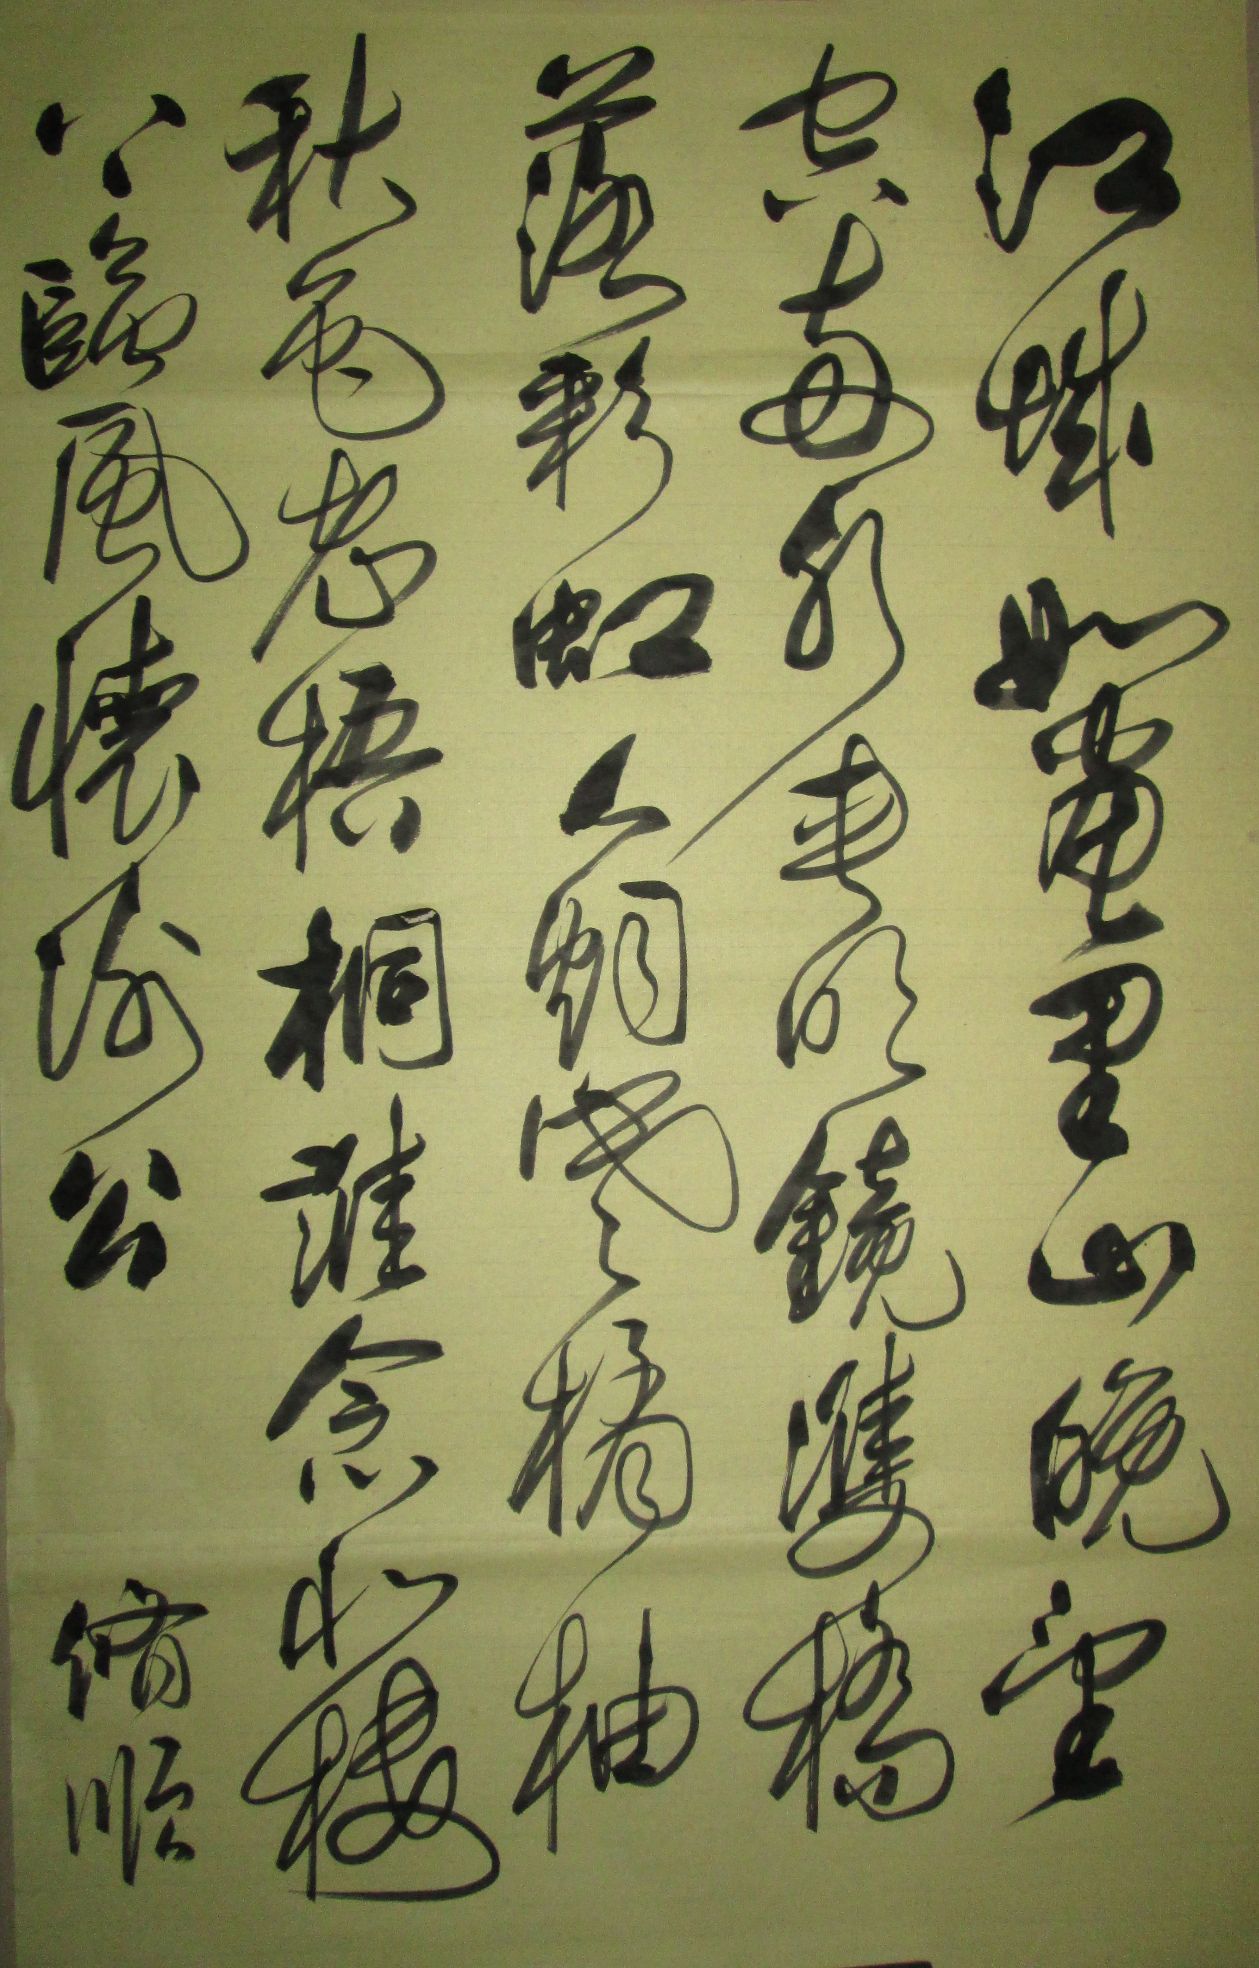 江城如畫里山晚望
空兩水夾明鏡雙橋
落彩虹人烟寒橘柚
秋色老梧桐誰念北樓
上臨風懷謝公 脩順